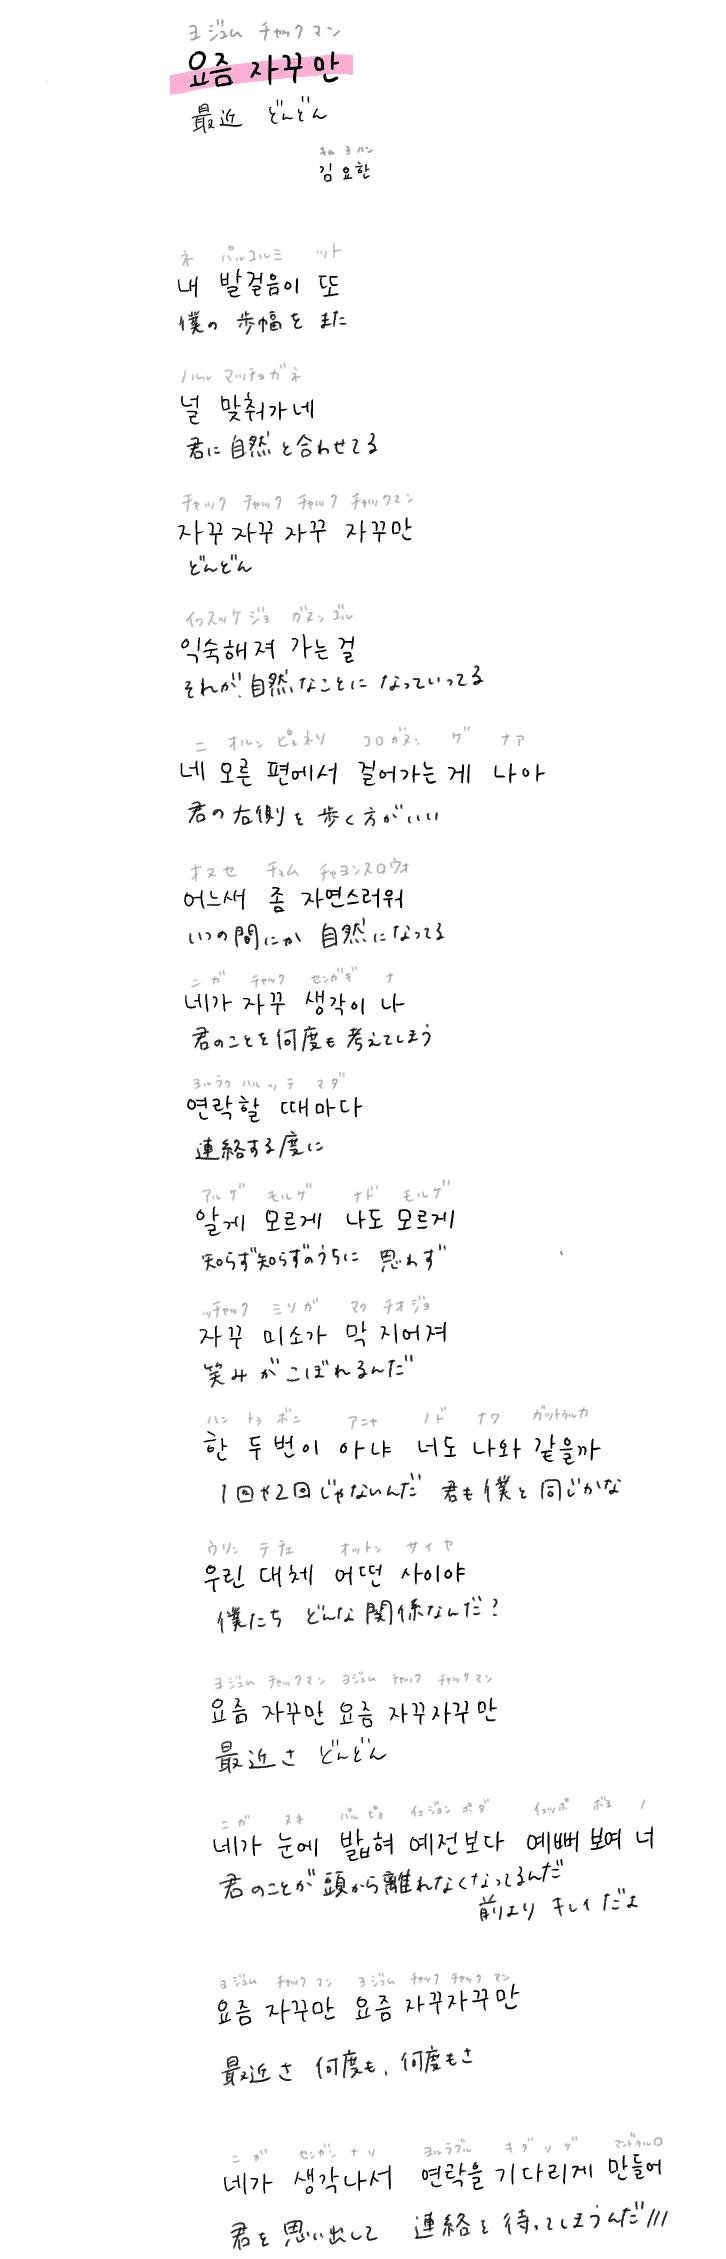 ヨジュム チャックマン
요즘 자꾸만
最近 どんどん
キム ヨ ハン
김요한
ネ パルコルミ ット
내 발걸음이 또
僕の 歩幅を また
ノル マッチョガネ
널 맞춰가네
君に自然と合わせてる
チャック チャック チャック チャックマン
자꾸 자꾸 자꾸 자꾸만
どんどん
イクスッケジョ ガヌンゴル
익숙해져 가는 걸
それが自然なことに なっていってる
ニ オルン ピョネソ コロガヌン ゲ ナア
네 오른 편에서 걸어가는 게 나아
君の右側を 歩く方がいい
オヌセ チョム チャヨンスロウォ
어느새 좀 자연스러워
いつの間にか 自然になってる
ニガ チャック センガギ ナ
네가 자꾸 생각이 나
君のことを何度も考えてしまう
ヨルラクハルッテ マダ
연락할 때마다
連絡する度に
アルゲ モルゲ ナド モルゲ
알게 모르게 나도 모르게
知らず知らずのうちに 思わず
ッチャック ミソガ マク チオジョ
자꾸 미소가 막 지어져
笑みがこぼれるんだ
ハン トゥ ボニ アニャ ノド ナワ ガットゥルカ
한 두번이 아냐 너도 나와 같을까
1回や2回じゃないんだ 君も僕と同じかな
ウリン テチェ オットン サイヤ
우린 대체 어떤 사이야
僕たち どんな関係なんだ?
ヨジュム チャックマン ヨジュム チャック チャックマン
요즘 자꾸만 요즘 자꾸자꾸만
最近さ どんどん
ニガ ヌネ パルピョ イェジョン ポダ イェッポ ボヨ ノ
네가 눈에 밟혀 예전보다 예뻐 보여 너
君のことが頭から離れなくなってるんだ
前より キレイだよ
ヨジュム チャックマン ヨジュム チャック チャックマン
요즘 자꾸만 요즘 자꾸자꾸만
最近さ 何度も、何度もさ
ニガ センガンナソ ヨルラグル キダリゲ マンドゥルロ
네가 생각나서 연락을 기다리게 만들어
君を思い出して 連絡を待ってしまうんだ///